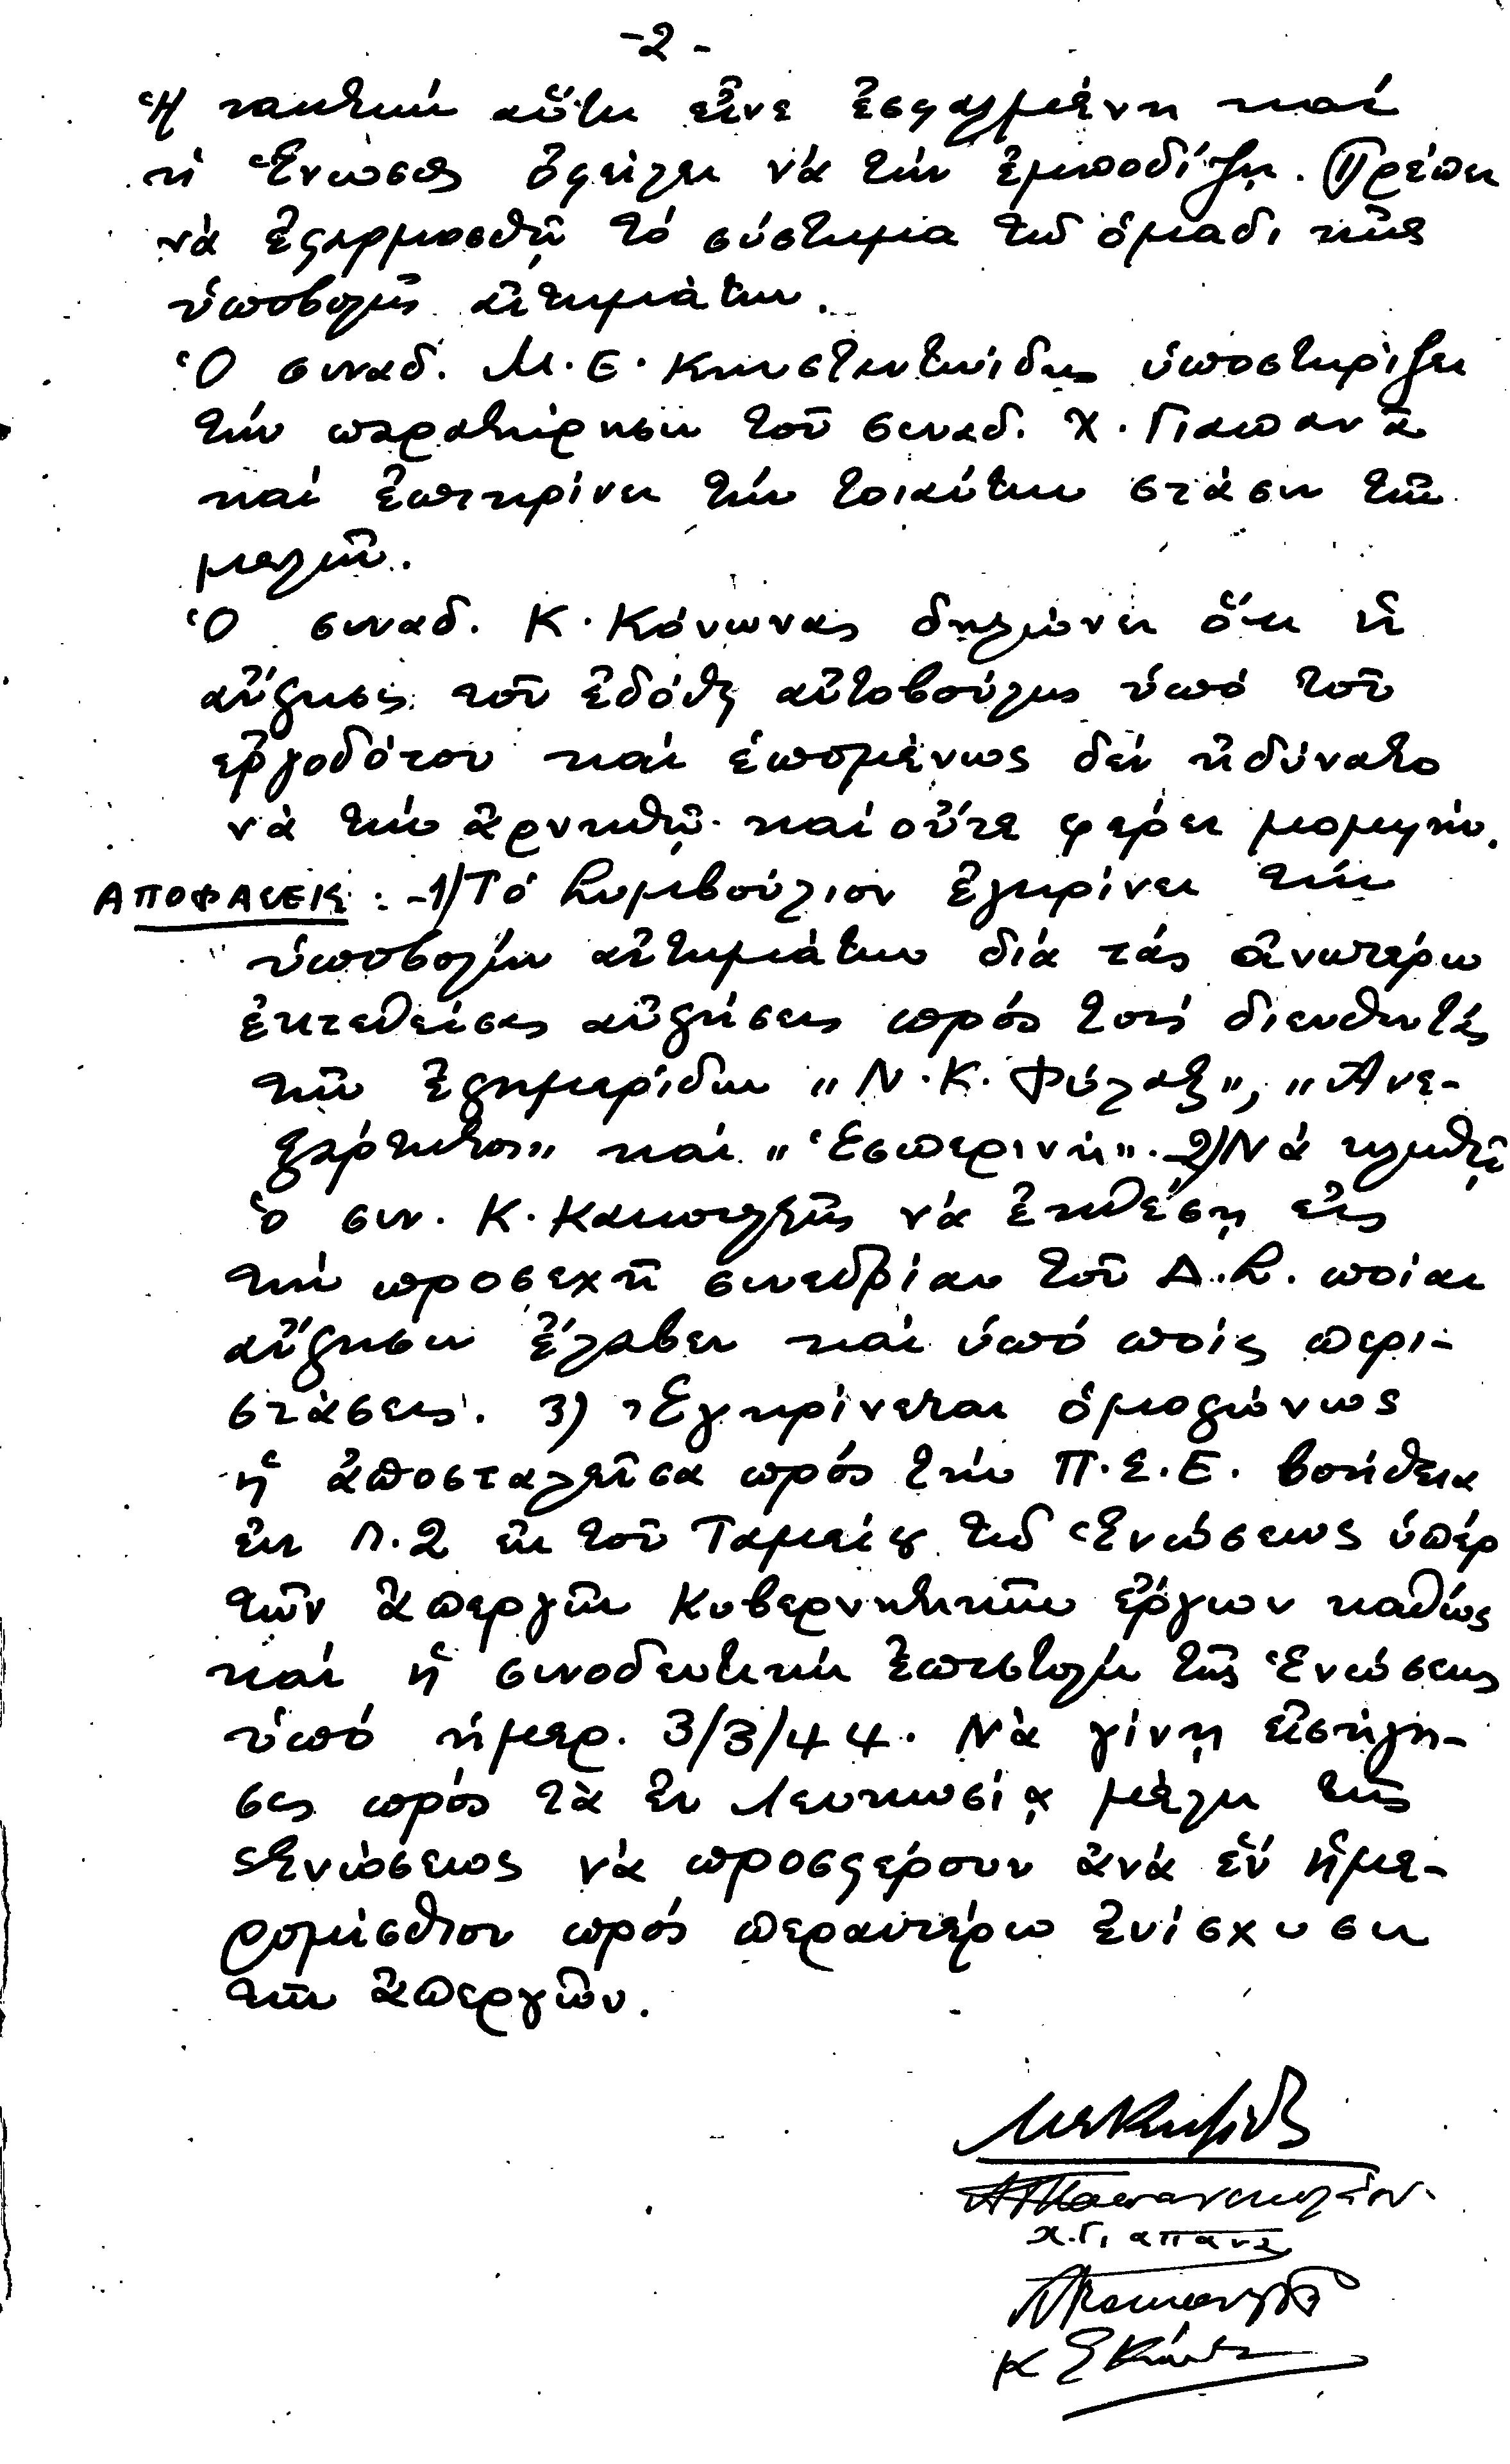 -2-
Ἡ τακτική αὕτη εἶνε ἐσφαλμένη καί
ἡ Ἕνωσις ὀφείλει νά τήν ἐμποδίζῃ. Πρέπει
νά ἐφαρμοσθῇ τό σύστημα τῆς ὁμαδικῆς
ὑποβολῆς αἰτημάτων.
Ὁ συναδ. Μ.Ε. Κωνσταντινίδης ὑποστηρίζει
τήν παρατήρησιν τοῦ συναδ. Χ. Γιαπανᾶ
καί ἐπικρίνει τήν τοιαύτην στάσιν τῶν
μελῶν.
Ὁ συναδ. Κ. Κόνωνας δηλώνει ὅτι ἡ
αὔξησις τοῦ ἐδόθη αὐτοβούλως ὑπό τοῦ
ἐργοδότου καί ἑπομένως δέν ἠδύνατο
νά τήν ἀρνηθῇ καί οὔτε φέρει μομφήν.
ΑΠΟΦΑΣΕΙΣ: -1) Τό Συμβούλιον ἐγκρίνει τήν
ὑποβολήν αἰτημάτων διά τάς ἀνωτέρω
ἐκτεθείσας αὐξήσεις πρός τούς διευθυντάς
τῶν ἐφημερίδων "Ν.Κ. Φύλαξ", "Ανε-
ξάρτητος" καί "Ἑσπερινή". 2) Νά κληθῇ
ὁ συν. Κ. να ἐκθέσῃ εἰς
τήν προσεχῆ συνεδρίαν τοῦ Δ.Σ. ποίαν
αὔξησιν ἔλαβεν καί ὑπό ποίας περι-
στάσεις. 3) Ἐγκρίνεται ὁμοφώνως
ἡ ἀποσταλεῖσα πρός τήν Π.Σ.Ε. βοήθεια
ἐκ Λ.2 ἐκ τοῦ Ταμείου τῆς Ἑνώσεως ὑπέρ
τῶν ἀπεργῶν Κυβερνητικῶν ἔργων καθώς
καί ἡ συνοδευτική ἐπιστολή τῆς Ἑνώσεως
ὑπό ἡμερ. 3/3/44. Νά γίνῃ εἰσήγη-
σις πρός τά ἐν Λευκωσίᾳ μέλη τῆς
Ἑνώσεως νά προσφέρουν ἀνά ἕν ἡμε-
ρομίσθιον πρός περαιτέρω ἐνίσχυσιν
τῶν ἀπεργῶν.
Χ. Γιαπανᾶ